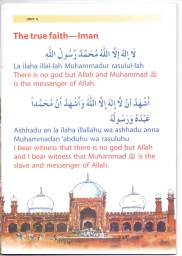 UNIT 4
The true faith—Iman
لَا إِلٰهَ إِلَّا اللّٰهُ مُحَمَّدٌ رَّسُولُ اللّٰهِ
La ilaha illal-lah Muhammadur rasulul-lah
There is no god but Allah and Muhammad ﷺ
is the messenger of Allah.
أَشْهَدُ أَنْ لَّا إِلٰهَ إِلَّا اللّٰهُ وَأَشْهَدُ أَنَّ مُحَمَّداً
عَبْدُهُ وَرَسُولُهُ
Ashhadu an la ilaha illallahu wa ashhadu anna
Muhammadan 'abduhu wa rasuluhu.
I bear witness that there is no god but Allah
and I bear witness that Muhammad ﷺ is the
slave and messenger of Allah.